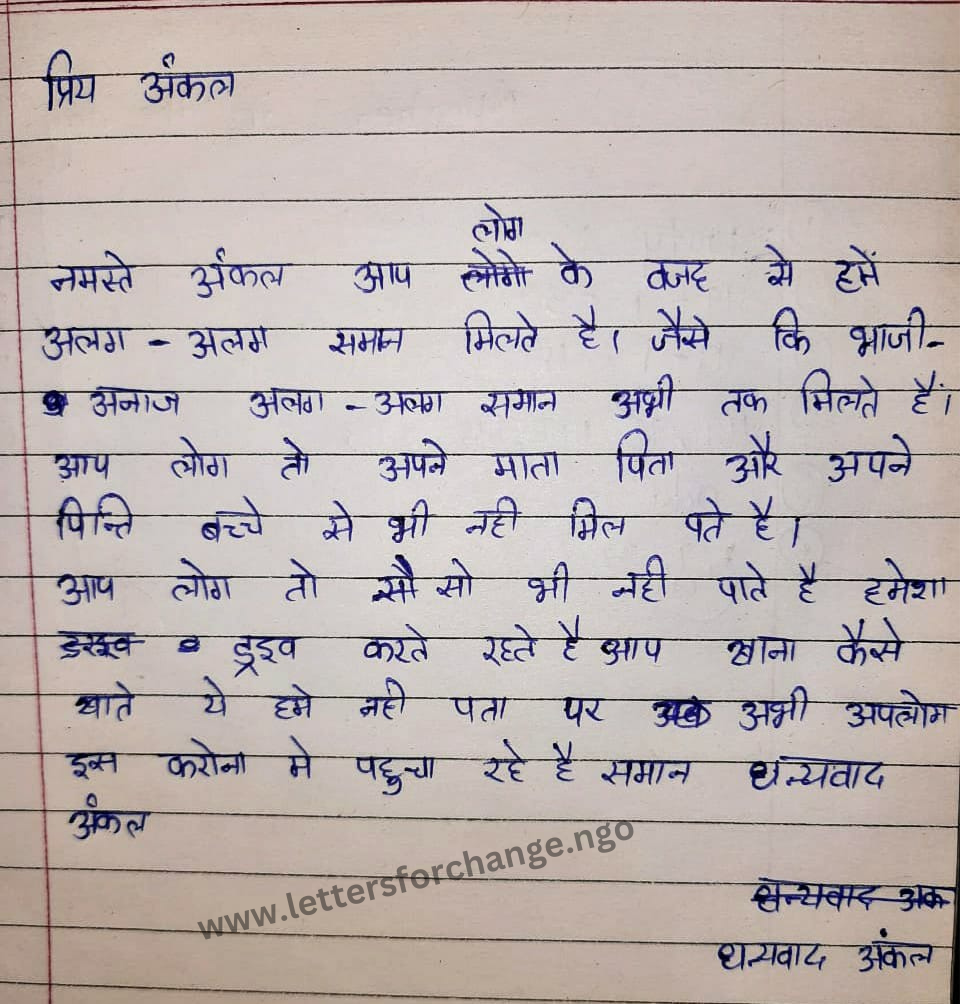 प्रिय अंकल
लोग
नमस्ते अंकल आप लोगो के वजह से हमें
अलग - अलग समान मिलते है। जैसे कि भाजी-
अनाज अलग - अलग समान अभी तक मिलते हैं।
आप लोग तो अपने माता पिता और अपने
पिन्ति बच्चे से भी नही मिल पते है।
आप लोग तो सौ सो भी नही पाते है हमेशा
ड्रइव करते रहते है आप खाना कैसे
खाते ये हमे नही पता पर अभी अपलोग
इस करोना मे पहुचा रहे है समान धन्यवाद
अंकल
धन्यवाद अंक
धन्यवाद अंकल
www.lettersforchange.ngo